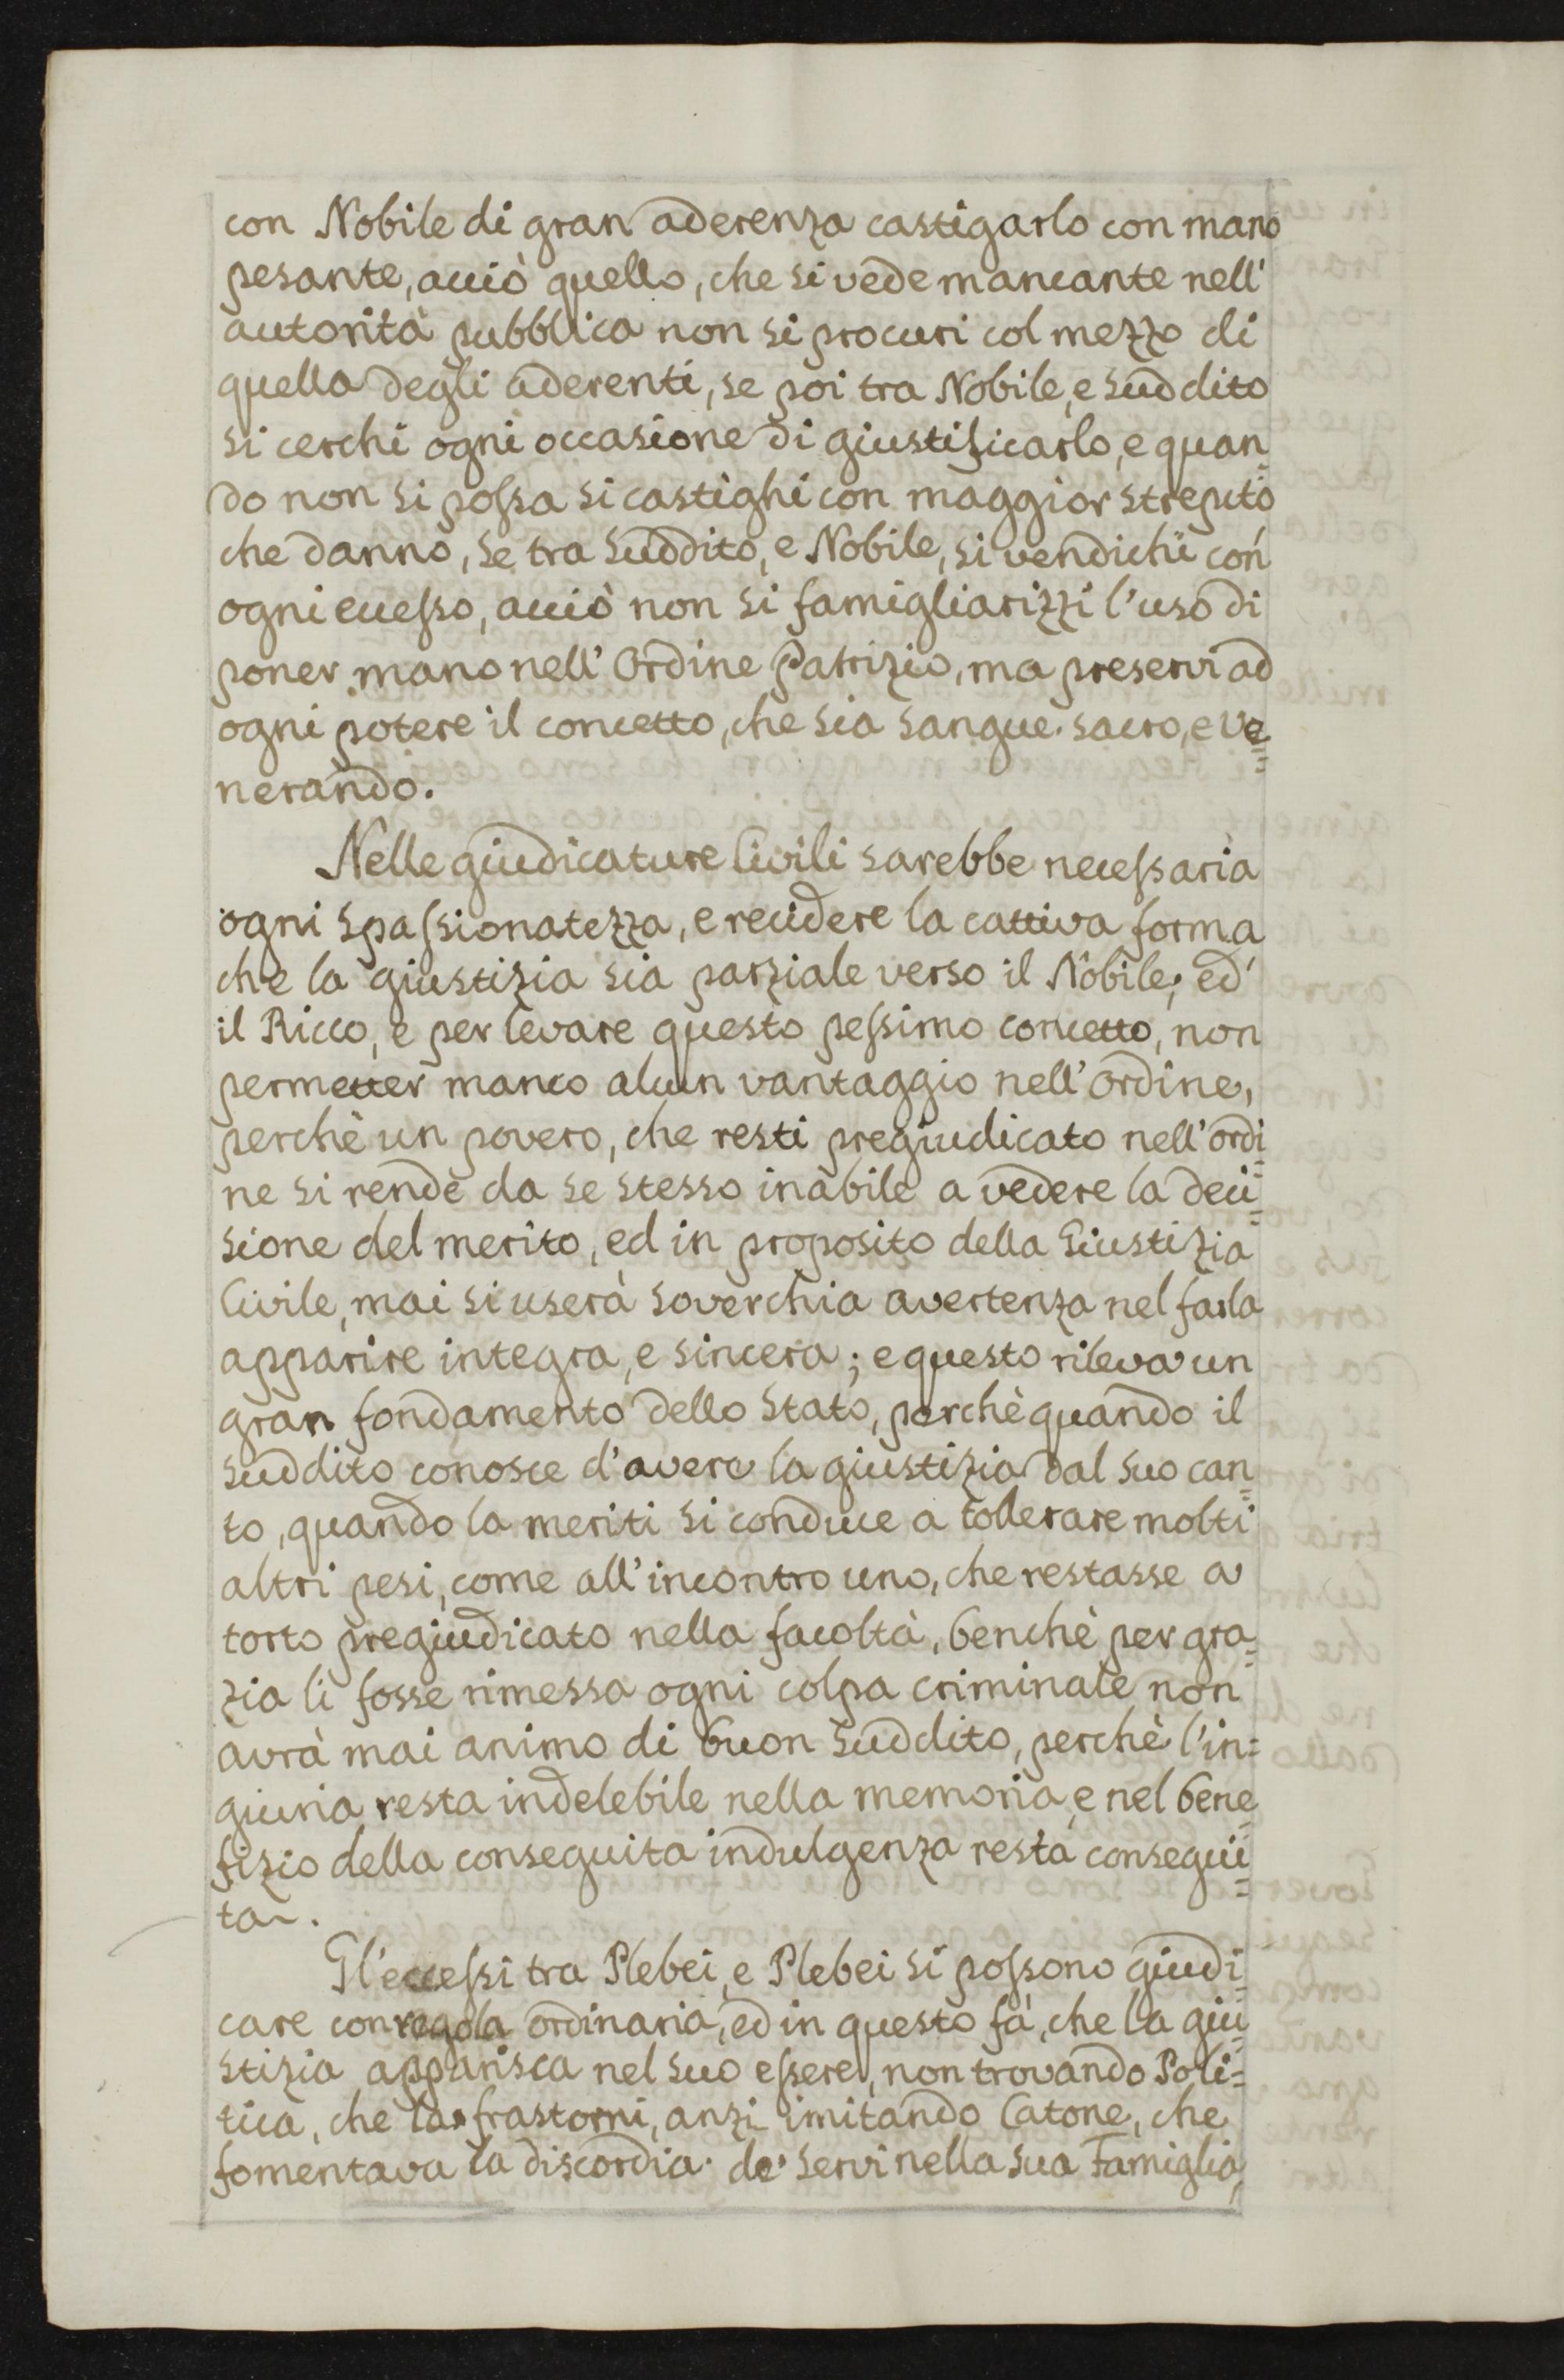 con Nobile di gran aderenza castigarlo con mano
pesante, acciò quello, che si vede mancante nell'
autorità pubblica non si procuri col mezzo di
quella degli aderenti, se poi tra Nobile, e Suddito
si cerchi ogni occasione di giustificarlo, e quan=
do non si possa si castighi con maggior strepito
che danno, se tra Suddito, e Nobile, si vendichi con
ogni eccesso, acciò non si famigliarizzi l'uso di
poner mano nell' Ordine Patrizio, ma preservi ad
ogni potere il concetto, che sia sangue sacro, e ve=
nerando.
Nelle giudicature Civili sarebbe necessaria
ogni spassionatezza, e recidere la cattiva forma
che la giustizia sia parziale verso il Nobile, ed
il Ricco, e per levare questo pessimo concetto, non
permetter manco alcun vantaggio nell' ordine,
perchè un povero, che resti pregiudicato nell' ordi=
ne si rende da se stesso inabile a vedere la deci=
sione del merito, ed in proposito della Giustizia
Civile, mai si userà soverchia avertenza nel farla
apparire integra, e sincera; e questo rileva un
gran fondamento dello Stato, perchè quando il
suddito conosce d'avere la giustizia dal suo can=
to, quando la meriti si conduce a tollerare molti
altri pesi, come all'incontro uno, che restasse a
torto pregiudicato nella facoltà, benchè per gra=
zia li fosse rimessa ogni colpa criminale non
avrà mai animo di buon Suddito, perchè l'in=
giuria resta indelebile nella memoria, e nel bene=
fizio della conseguita indulgenza resta consegui=
ta.
Gl'eccessi tra Plebei, e Plebei si possono giudi=
care con regola ordinaria, ed in questo fà, che la giu=
stizia apparisca nel suo essere, non trovando Poli=
tica, che la frastorni, anzi imitando Catone, che
fomentava la discordia de' Servi nella sua Famiglia,